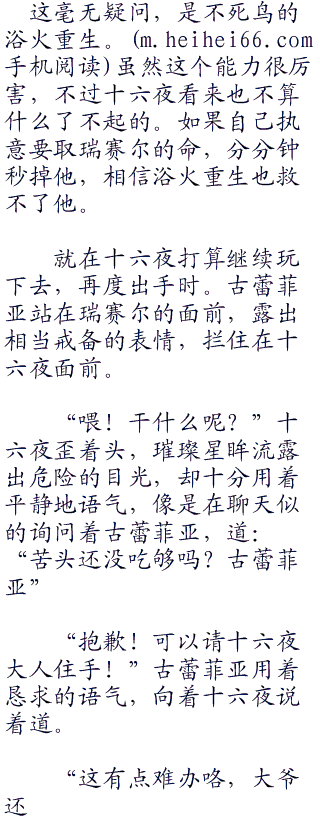 这毫无疑问，是不死鸟的
浴火重生。(m.heihei66.com
手机阅读)虽然这个能力很厉
害，不过十六夜看来也不算
什么了不起的。如果自己执
意要取瑞赛尔的命，分分钟
秒掉他，相信浴火重生也救
不了他。
就在十六夜打算继续玩
下去，再度出手时。古蕾菲
亚站在瑞赛尔的面前，露出
相当戒备的表情，拦住在十
六夜面前。
“喂！干什么呢？”十
六夜歪着头，璀璨星眸流露
出危险的目光，却十分用着
平静地语气，像是在聊天似
的询问着古蕾菲亚，道：
“苦头还没吃够吗？古蕾菲
亚”
“抱歉！可以请十六夜
大人住手！”古蕾菲亚用着
恳求的语气，向着十六夜说
着道。
“这有点难办咯，大爷
还